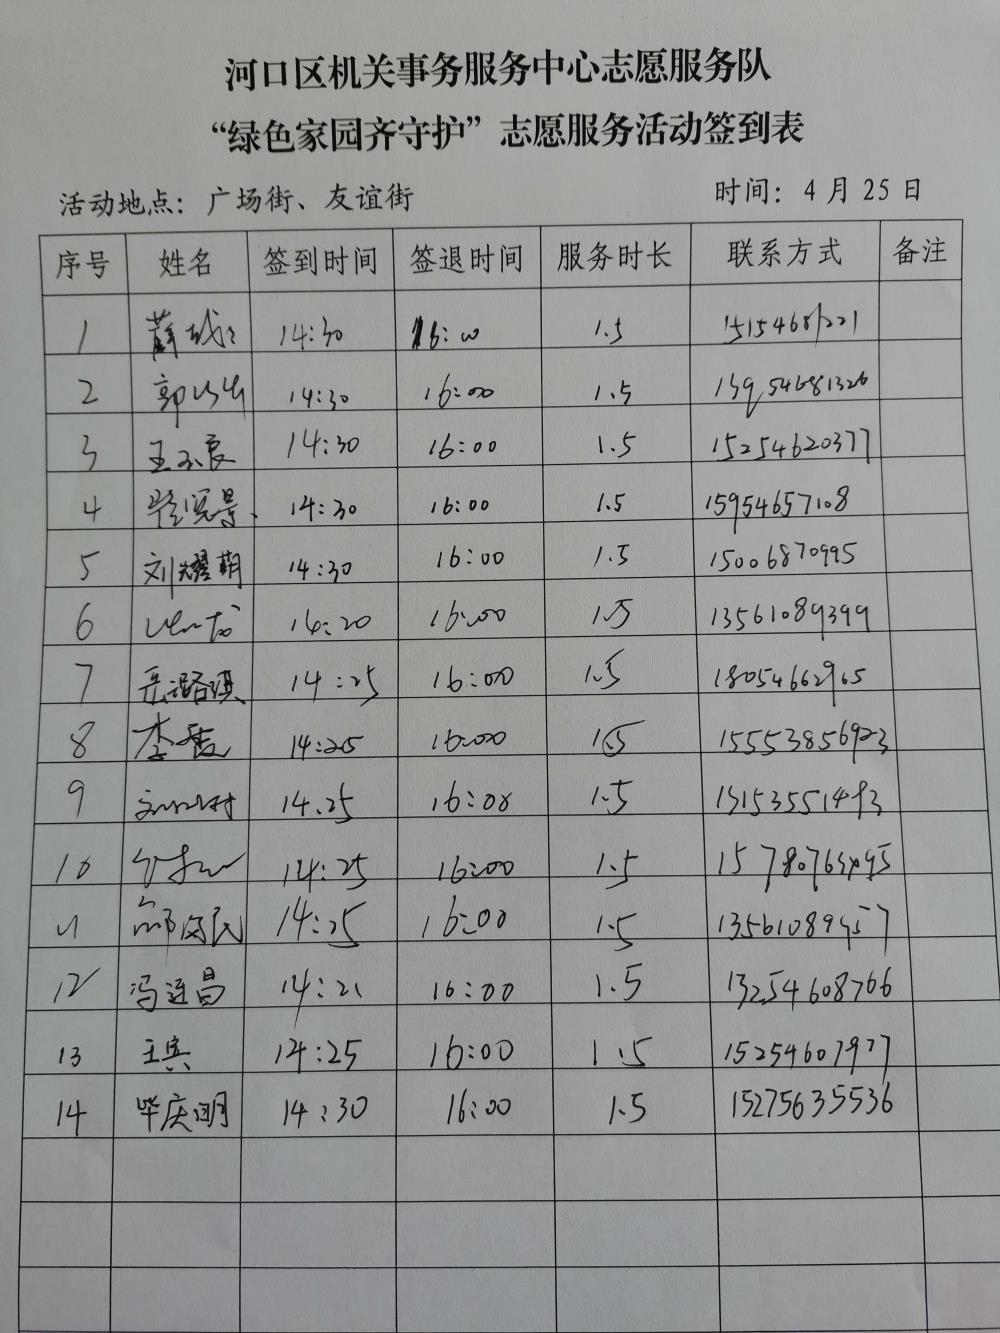 河口区机关事务服务中心志愿服务队
“绿色家园齐守护”志愿服务活动签到表
活动地点：广场街、友谊街 时间：4月25日
序号 姓名 签到时间 签退时间 服务时长 联系方式 备注
1 薛 14:30 16:00 1.5
2 郭 14:30 16:00 1.5
3 王玉良 14:30 16:00 1.5 15254620377
4 14:30 16:00 1.5 15954657108
5 刘耀萌 14:30 16:00 1.5 15006870995
6 14:20 16:00 1.5 13561089399
7 岳潞琪 14:25 16:00 1.5 18054662965
8 李霞 14:25 16:00 1.5 15553856923
9 14.25 16:00 1.5
10 14:25 16:00 1.5
11 14:25 16:00 1.5
12 冯连昌 14:21 16:00 1.5 13254608766
13 王宾 14:25 16:00 1.5 15254607977
14 毕庆明 14:30 16:00 1.5 15275635536